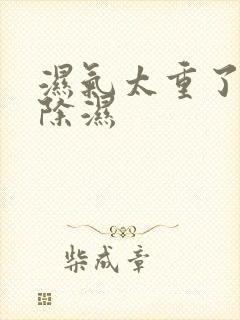 濕氣太重了
除濕
柴成章